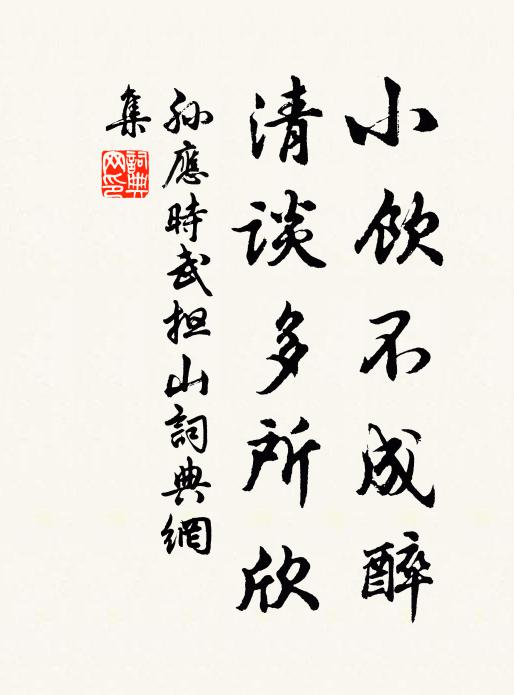 小飲不成醉
清談多所欣
孫應時武担山詞典網
集
詞典
网印